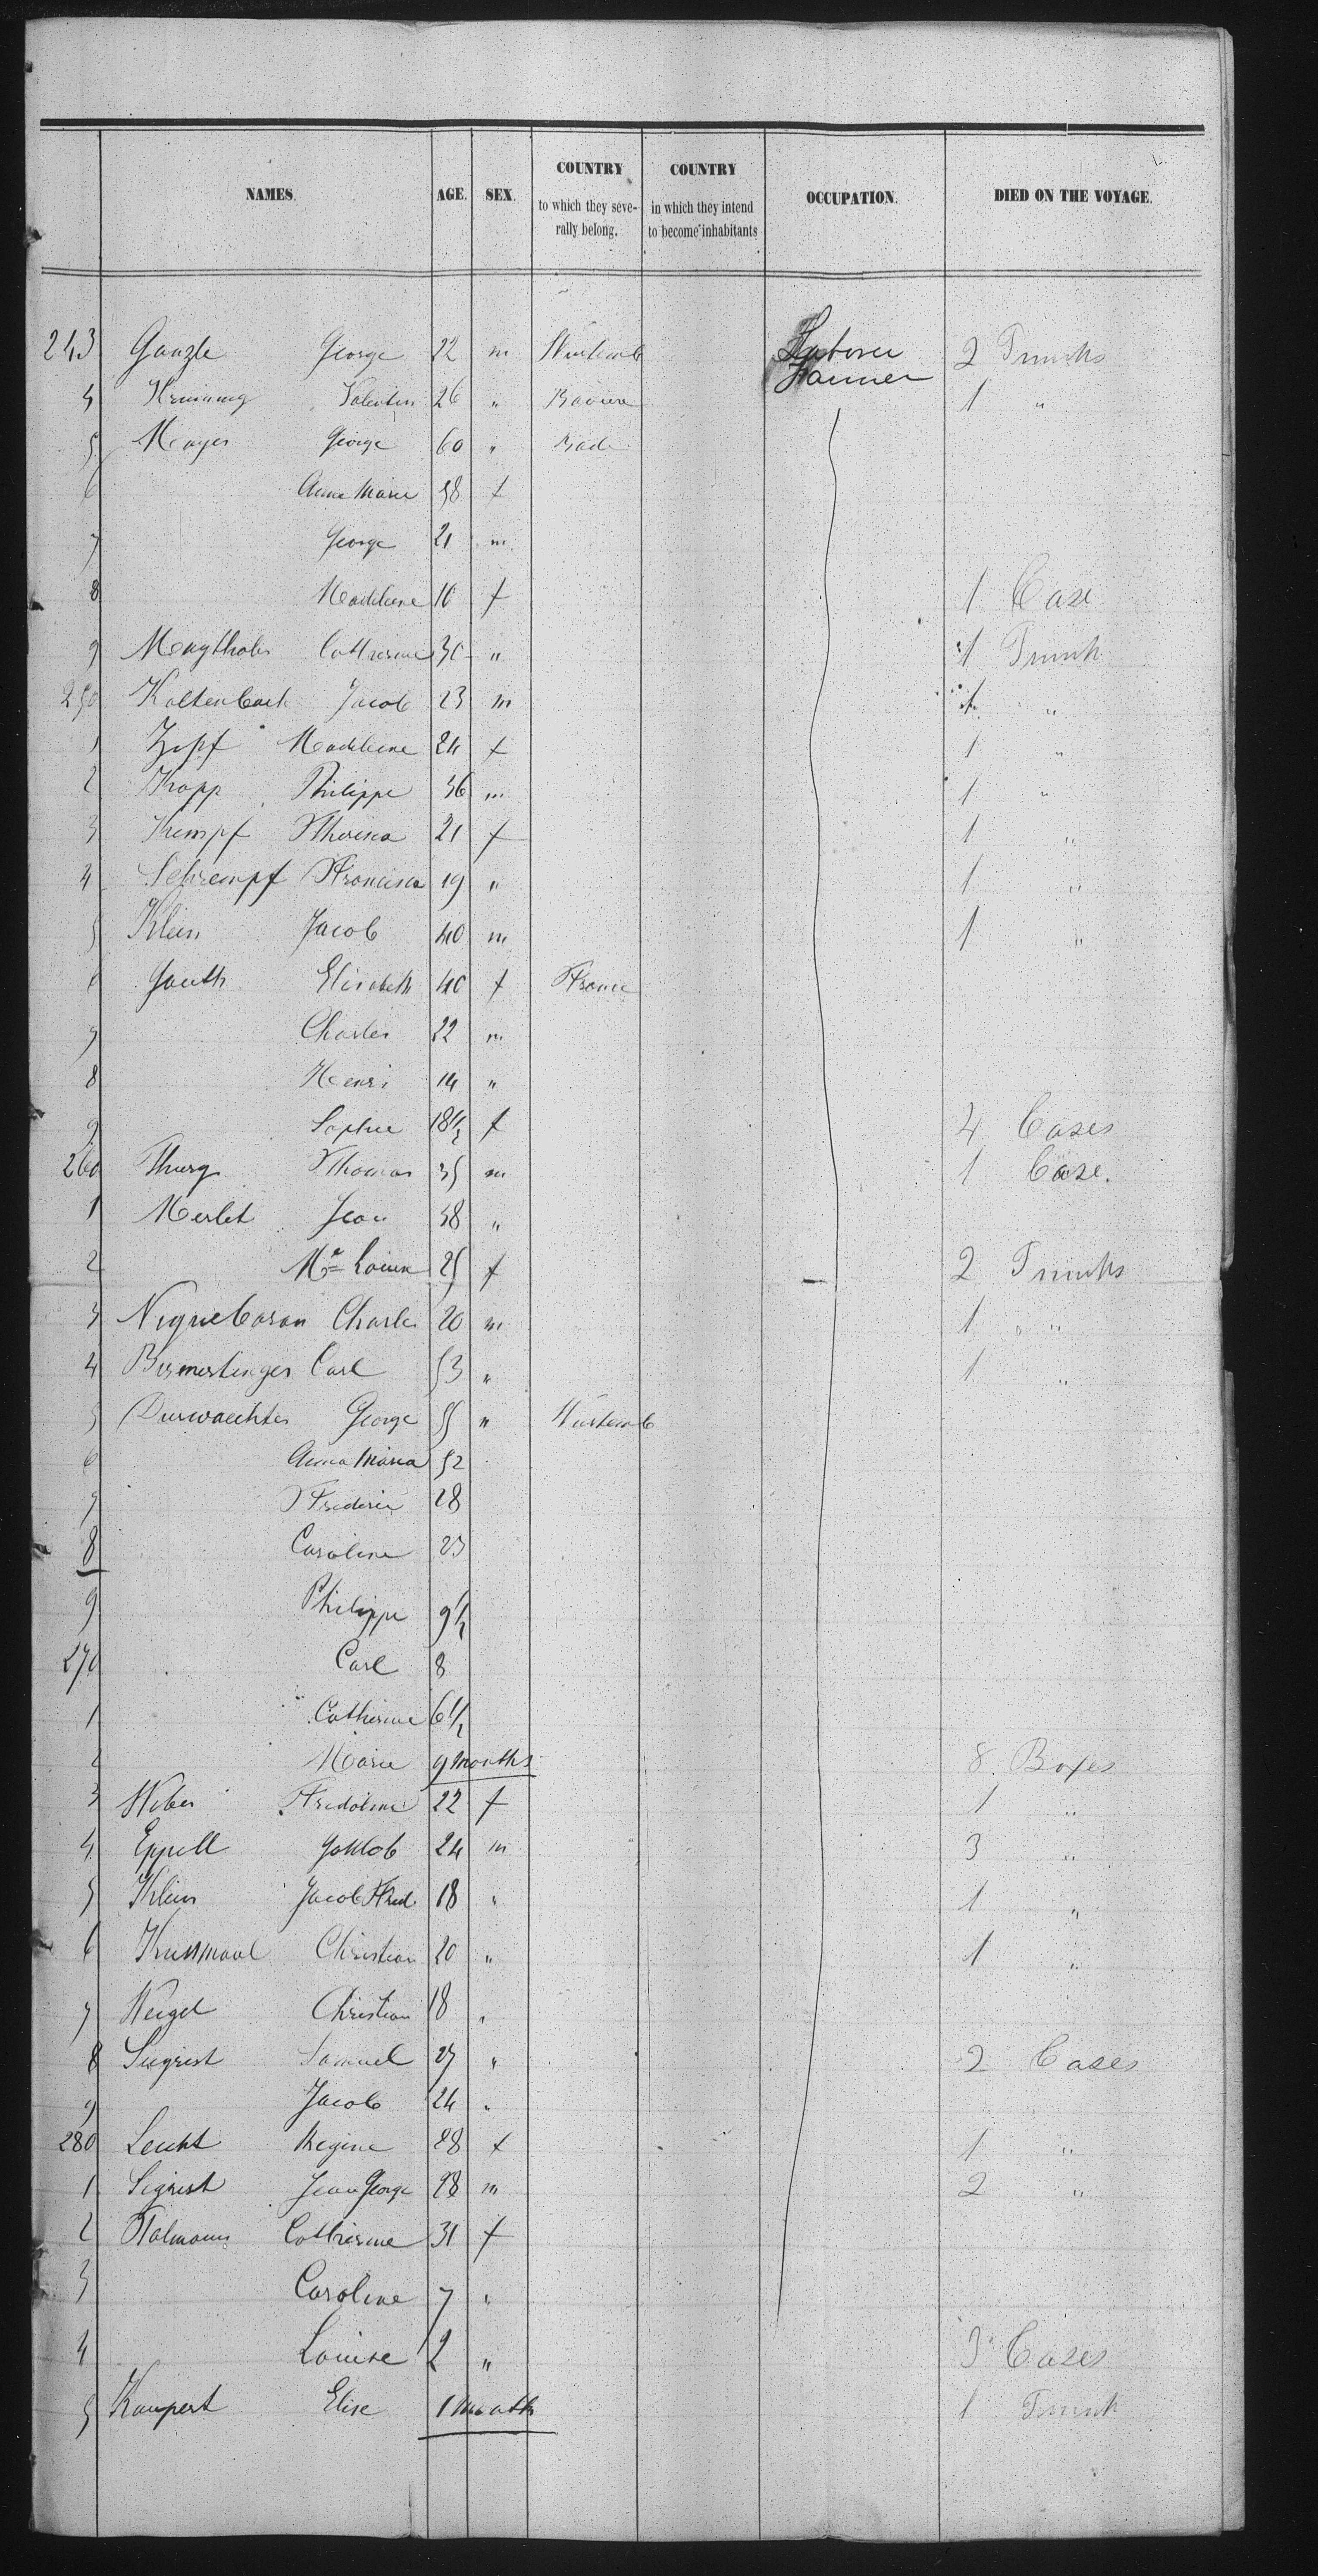 NAMES. AGE. SEX. COUNTRY to which they severally belong. COUNTRY in which they intend to become inhabitants OCCUPATION. DIED ON THE VOYAGE.
243 Ganzle George 22 m Wurtemb 2 Trunks
Farmer
4 Valentin 26 " Baviere 1 "
5 Mayer George 60 " Bade
6 Anna Marie 58 f
7 George 21 m
8 Madelene 10 f 1 Case
9 Catherine 30 " 1 Trunk
250 Kaltenbach Jacob 23 m 1 "
1 Zipf Madelene 24 f 1 "
2 Kapp Philippe 36 m 1 "
3 Kempf Theresa 21 f 1 "
4 Schrempf Francisca 19 " 1 "
5 Klein Jacob 40 m 1 "
6 Gauth Elisabeth 40 f France
7 Charles 22 m
8 Henri 14 "
9 Sophie 18 1/2 f 4 Cases
260 Thurg Thomas 35 m 1 Case.
1 Merlet Jean 38 "
2 25 f 2 Trunks
3 Charles 20 m 1 "
4 Carl 53 " 1 "
5 Durwaechter George 55 " Wurtemb
6 Anna Maria 52
7 Frederic 28
8 Caroline 23
9 Philippe 9 1/2
270 Carl 8
1 Catherine 6 1/2
2 Marie 9 months 8 Boxes
3 Weber 22 f 1 "
4 Eppell Gottlob 24 m 3 "
5 Klein Jacob Fred 18 " 1 "
6 Kussmaul Christian 20 " 1 "
7 Weigel Christian 18 "
8 Siegrist Samuel 27 " 2 Cases
9 Jacob 24 "
280 Leicht Regine 28 f 1 "
1 Sigrist Jean George 28 m 2 "
2 Catherine 31 f
3 Caroline 7 "
4 Louise 2 " 3 Cases
5 Kaupert Elise 1 month 1 Trunk